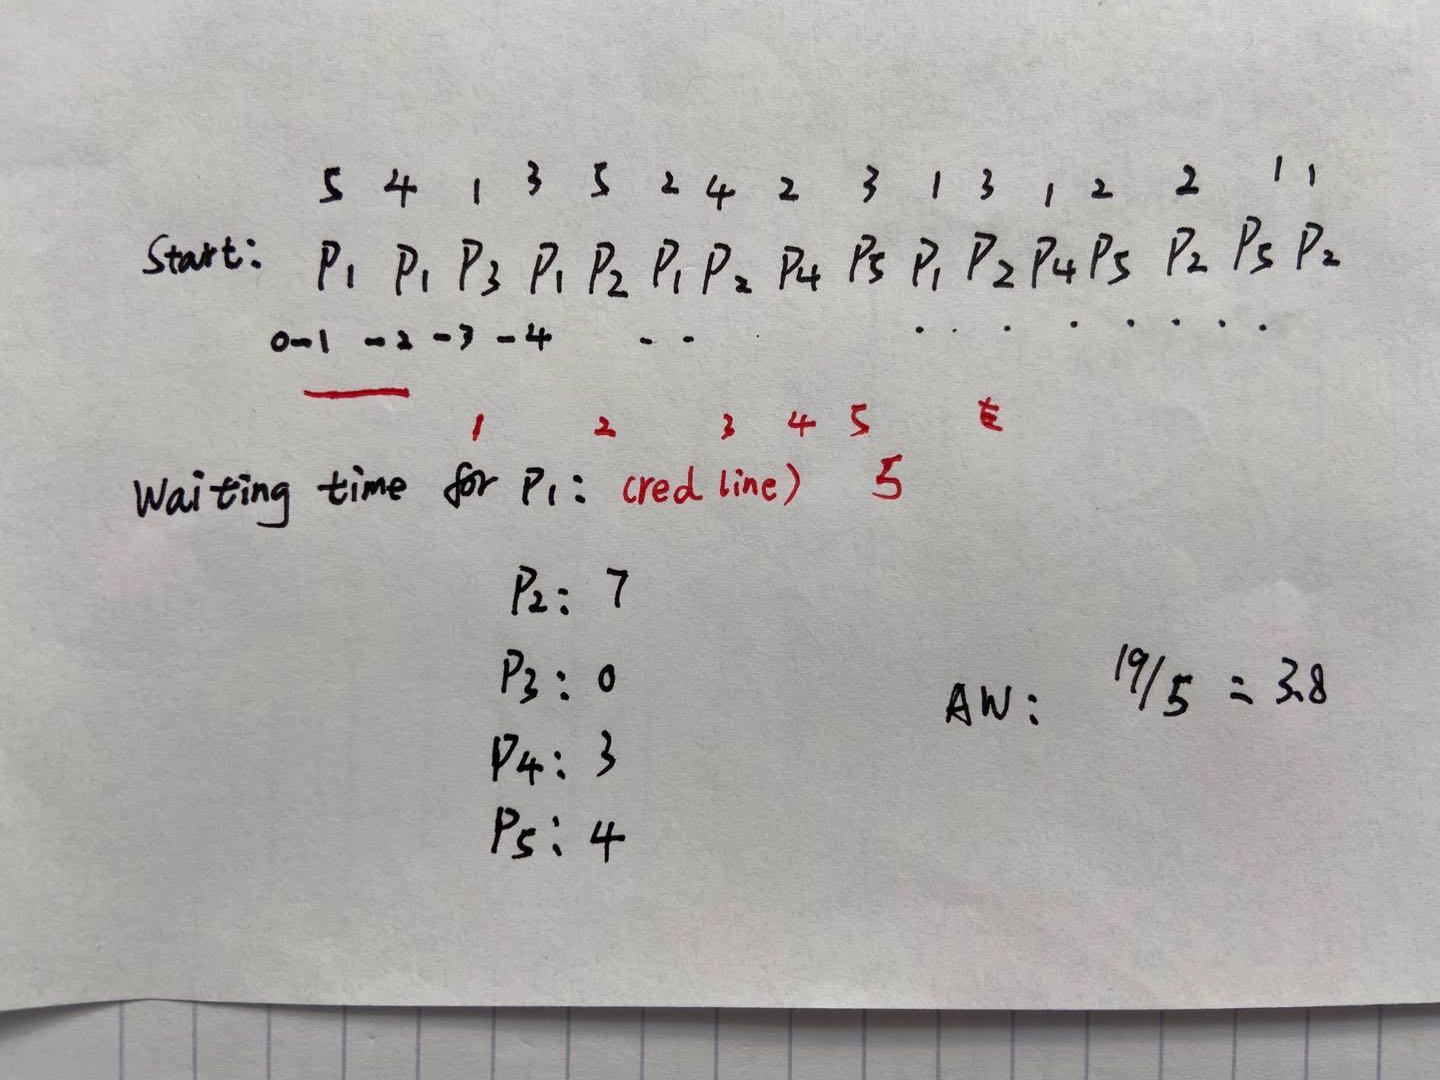 5 4 1 3 5 2 4 2 3 1 3 1 2 2 1 1
Start: P1 P1 P3 P1 P2 P1 P2 P4 P5 P1 P2 P4 P5 P2 P5 P2
0-1 -2 -3 -4 - - . . . . . . . .
1 2 3 4 5
Waiting time for P1: (red line) 5
P2: 7
P3: 0
AW: 19/5 = 3.8
P4: 3
P5: 4